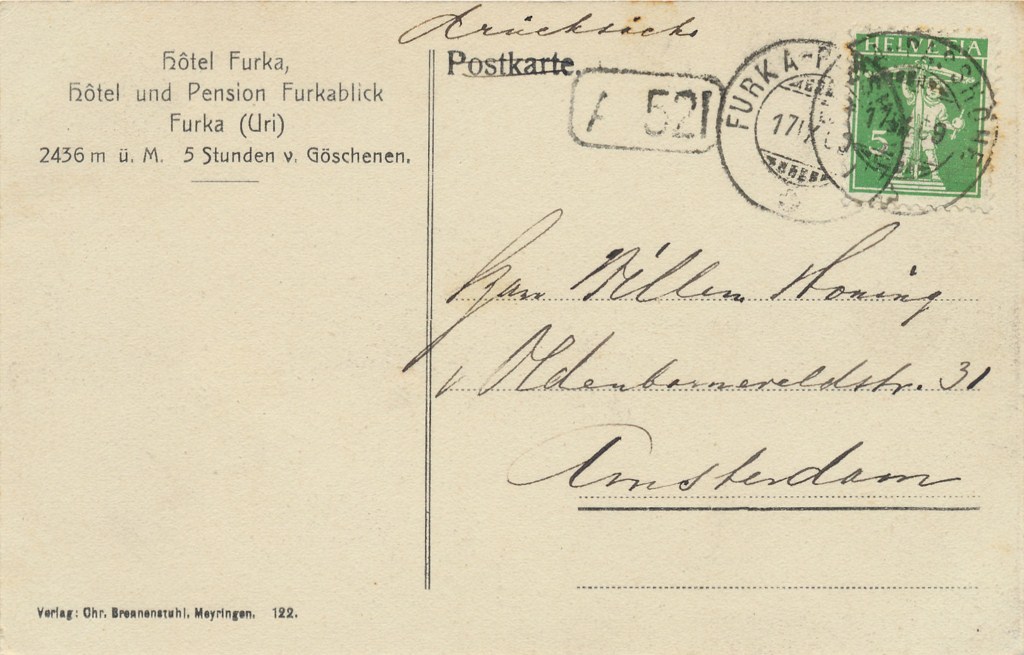 Hôtel Furka,
Hôtel und Pension Furkablick
Furka (Uri)
2436 m ü. M. 5 Stunden v. Göschenen.
Verlag: Chr. Brennenstuhl, Meyringen. 122.
Drücksache
Postkarte.
A 521
FURKA-P
17 IX 09
HELVETIA
5
Willem Honing
v Oldenbarneveldstr. 31
Amsterdam